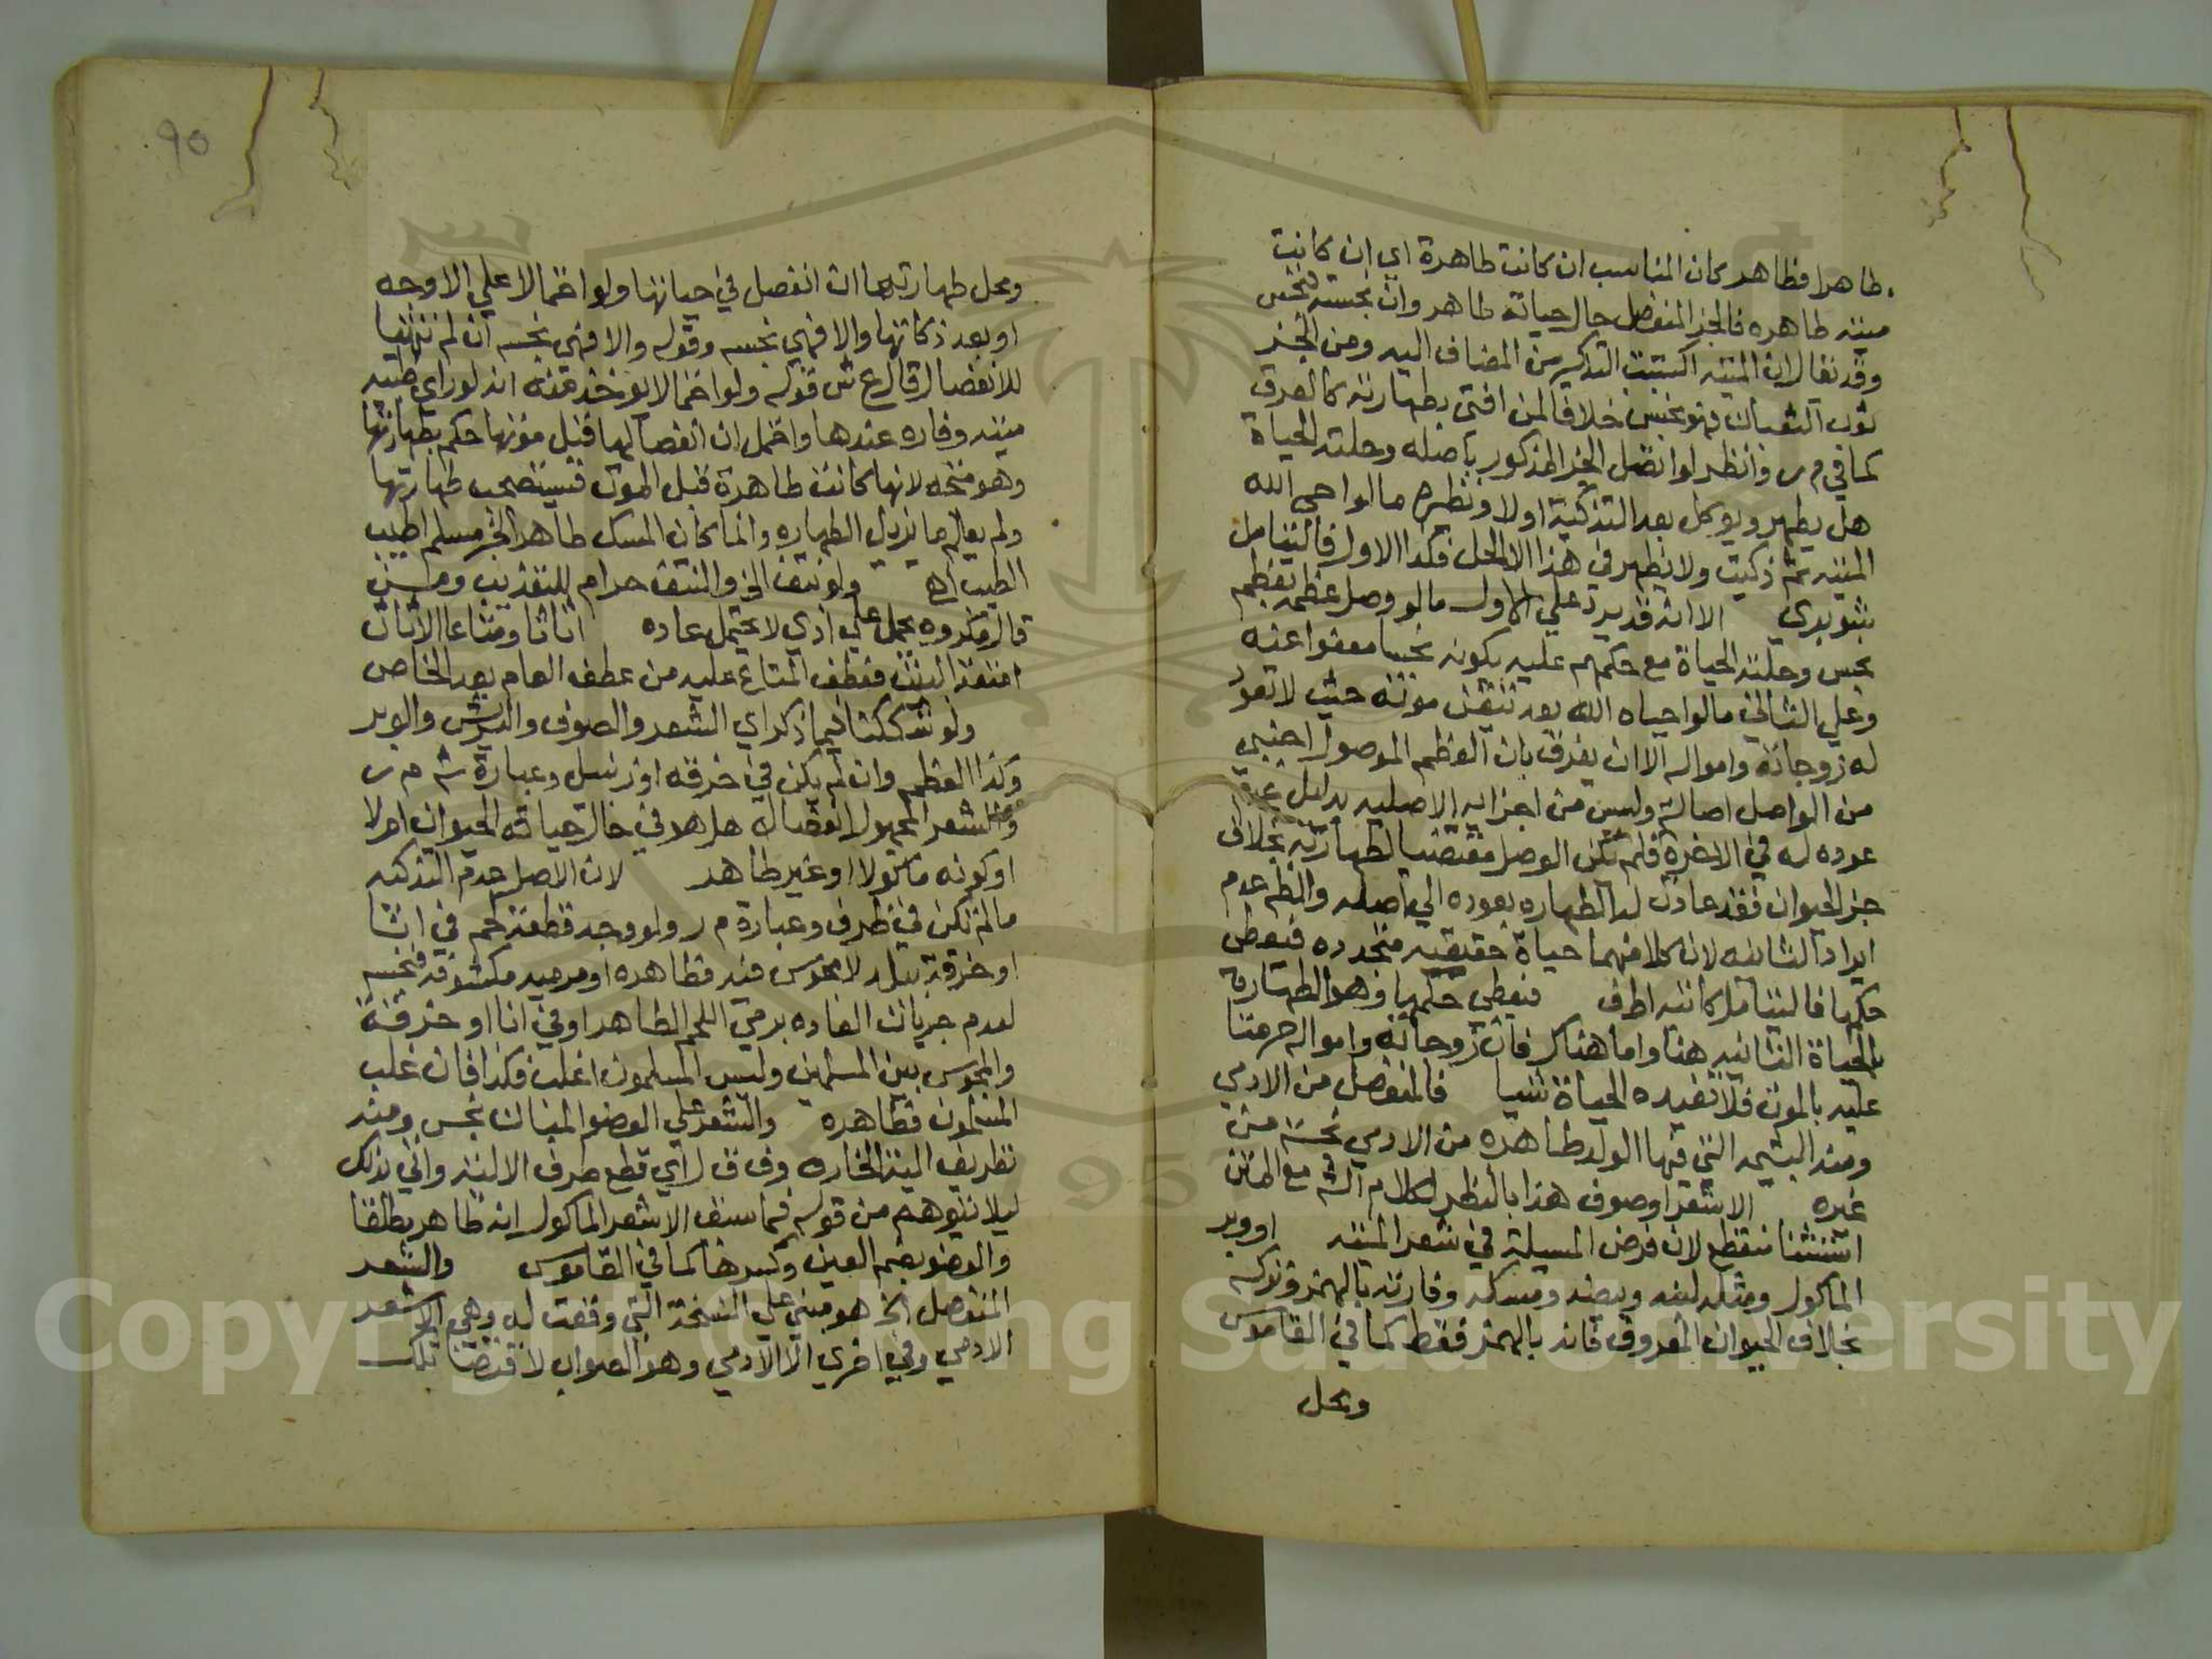 طاهرا فظاهر كان المناسب ان كانت طاهرة اي ان كانت
ميتته طاهره فالجزء المنفصل حال حياته طاهر وان نجسة فنجس
وقد يقال ان الميتة اكتسبت التذكير من المضاف اليه ومن الجزء
ثوب الثعبان فهو نجس خلافا لمن افتى بطهارته كالعرق
كما في م ر وانظر لو اتصل الجزء المذكور باصله وحلته الحياة
هل يطهر ويؤكل بعد التذكية اولا ونظيره ما لو احيى الله
الميتة ثم ذكيت ولا يظهر في هذا الا الحل فكذا الاول فاليتامل
شوبري الا انه قد يرد على الاول ما لو وصل عظمه بعظم
نجس وحلته الحياة مع حكمهم عليه بكونه نجسا معفوا عنه
وعلى الثاني ما لو احياه الله بعد تيقن موته حيث لا تعود
له زوجاته وامواله الا ان يفرق بان العظم الموصول اجنبي
من الواصل اصالة وليس من اجزائه الاصليه بدليل عدم
عوده له في الاخرة فلم يكن الوصل مقتضيا لطهارته بخلاف
جزء الحيوان فقد عادت له الطهاره بعوده الى اصله وانظم عدم
ايراد الثانيه لان كلا منهما حياة حقيقيه متجدده فيعطى
حكمها فاليتامل كاتبه اطف فيعطى حكمها وهو الطهارة
بالحياة الثانيه هنا واما هناك فان زوجاته وامواله حرمتا
عليه بالموت فلا تفيده الحياة شيا فالمنفصل من الادمي
ومنه المشيمه التي فيها الولد طاهرة من الادمي نجسة من
غيره الا شعر او صوف هذا بالنظر لكلام الش مع المتن
استثنا منقطع لان فرض المسيلة في شعر الميته او وبر
الماكول ومثله لبنه وبيضه ومسكه وفارته بالهمز وتركه
بخلاف الحيوان المعروف فانه بالهمز فقط كما في القاموس
ومحل
90
ومحل طهارتهما ان انفصل في حياتها ولو احتمالا على الاوجه
او بعد ذكاتها والا فهي نجسه وقوله والا فهي نجسه ان لم تتهيا
للانفصال قال ع ش قوله ولو احتمالا يوخذ منه انه لو راي ظبيه
ميته وفاره عندها واحتمل ان انفصالها قبل موتها حكم بطهارتها
وهو متجه لانها كانت طاهرة قبل الموت فتستصحب طهارتها
ولم يعلم ما يزيل الطهاره وانما كان المسك طاهرا لخبر مسلم اطيب
الطيب اه ولو نتف الخ والنتف حرام للتعذيب ومن
قال مكروه يحمل على اذي لا يحتمل عاده اثاثا ومتاعا الاثاث
امتعة البيت فعطف المتاع عليه من عطف العام بعد الخاص
ولو شككنا فيما ذكر اي الشعر والصوف والريش والوبر
وكذا العظم وان لم يكن في خرقه او زنبيل وعبارة ش م ر
والشعر المجهول انفصاله هل هو في حال حياته الحيوان ام لا
او كونه ماكولا او غير طاهر لان الاصل عدم التذكيه
مالم تكن في ظرف وعبارة م ر ولو وجد قطعة لحم في انا
او خرقة ببلد لا مجوس فيه فطاهره او مرميه مكشوفه فنجسه
لعدم جريان العاده برمي اللحم الطاهر او في انا او خرقة
والمجوس بين المسلمين وليس المسلمون اغلب فكذا فان غلب
المسلمون فطاهره والشعر على العضو المبان نجس ومنه
تطريف الية الخاروف ق ل اي قطع طرف الالية واتي بذلك
ليلا يتوهم من قوله فيما سبق الا شعر الماكول انه طاهر مطلقا
والعضو بضم العين وكسرها كما في القاموس والشعر
المنفصل الخ هو مبني على النسخة التي وقعت له وهي الا شعر
الادمي وفي اخري الا الادمي وهو الصواب لاقتضا تلك